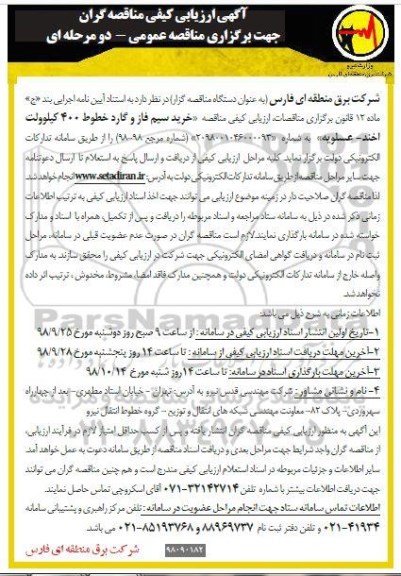 آگهی ارزیابی کیفی مناقصه گران
جهت برگزاری مناقصه عمومی – دو مرحله ای
وزارت نیرو
شرکت برق منطقه ای فارس
شرکت برق منطقه ای فارس (به عنوان دستگاه مناقصه گزار) در نظر دارد به استناد آیین نامه اجرایی بند «ج»
ماده ۱۲ قانون برگزاری مناقصات، ارزیابی کیفی مناقصه «خرید سیم فاز و گارد خطوط ۴۰۰ کیلوولت
اخند- عسلویه» به شماره «۲۰۹۸۰۰۱۰۴۶۰۰۰۰۹۳» (شماره مرجع ۹۸-۹۸) را از طریق سامانه تدارکات
الکترونیکی دولت برگزار نماید. کلیه مراحل ارزیابی کیفی از دریافت و ارسال پاسخ به استعلام تا ارسال دعوتنامه
جهت سایر مراحل مناقصه از طریق سامانه تدارکات الکترونیکی دولت به آدرس: www.setadiran.ir انجام خواهد شد.
لذا مناقصه گران صلاحیت دار در زمینه موضوع ارزیابی می توانند جهت اخذ اسناد ارزیابی کیفی به ترتیب اطلاعات
زمانی ذکر شده در ذیل به سامانه ستاد مراجعه و اسناد مربوطه را دریافت و پس از تکمیل، همراه با اسناد و مدارک
خواسته شده در سامانه بارگذاری نمایند. لازم است مناقصه گران در صورت عدم عضویت قبلی در سامانه، مراحل
ثبت نام در سامانه و دریافت گواهی امضای الکترونیکی جهت شرکت در ارزیابی کیفی را محقق سازند. به مدارک
واصله خارج از سامانه تدارکات الکترونیکی دولت و همچنین مدارک فاقد امضا، مشروط، مخدوش، ترتیب اثر داده
نخواهد شد.
اطلاعات زمانی به شرح ذیل می باشد:
۱-تاریخ اولین انتشار اسناد ارزیابی کیفی در سامانه : از ساعت ۹ صبح روز دوشنبه مورخ ۹۸/۹/۲۵
۲-آخرین مهلت دریافت اسناد ارزیابی کیفی از سامانه : تا ساعت ۱۴ روز پنجشنبه مورخ ۹۸/۹/۲۸
۳-آخرین مهلت بارگذاری اسناد در سامانه: تا ساعت ۱۴ روز شنبه مورخ ۹۸/۱۰/۱۴
۴- نام و نشانی مشاور : شرکت مهندسی قدس نیرو به آدرس: تهران - خیابان استاد مطهری- بعد از چهارراه
سهروردی- پلاک ۸۲- معاونت مهندسی شبکه های انتقال و توزیع - گروه خطوط انتقال نیرو
این آگهی به منظور ارزیابی کیفی مناقصه گران انتشار یافته و پس از کسب حداقل امتیاز لازم در فرآیند ارزیابی،
از مناقصه گران واجد شرایط جهت مراحل بعدی و دریافت اسناد مناقصه از طریق سامانه دعوت به عمل خواهد آمد.
سایر اطلاعات و جزئیات مربوطه در اسناد استعلام ارزیابی کیفی مندرج است و هم چنین مناقصه گران می توانند
جهت دریافت اطلاعات بیشتر با شماره تلفن ۳۲۱۴۲۷۱۴-۰۷۱ آقای اسکروچی تماس حاصل نمایند.
اطلاعات تماس سامانه ستاد جهت انجام مراحل عضویت در سامانه : تلفن مرکز راهبری و پشتیبانی سامانه
۴۱۹۳۴-۰۲۱ و تلفن دفتر ثبت نام ۸۸۹۶۹۷۳۷ و ۸۵۱۹۳۷۶۸-۰۲۱ می باشد.
۹۸۰۹۰۱۸۲
شرکت برق منطقه ای فارس